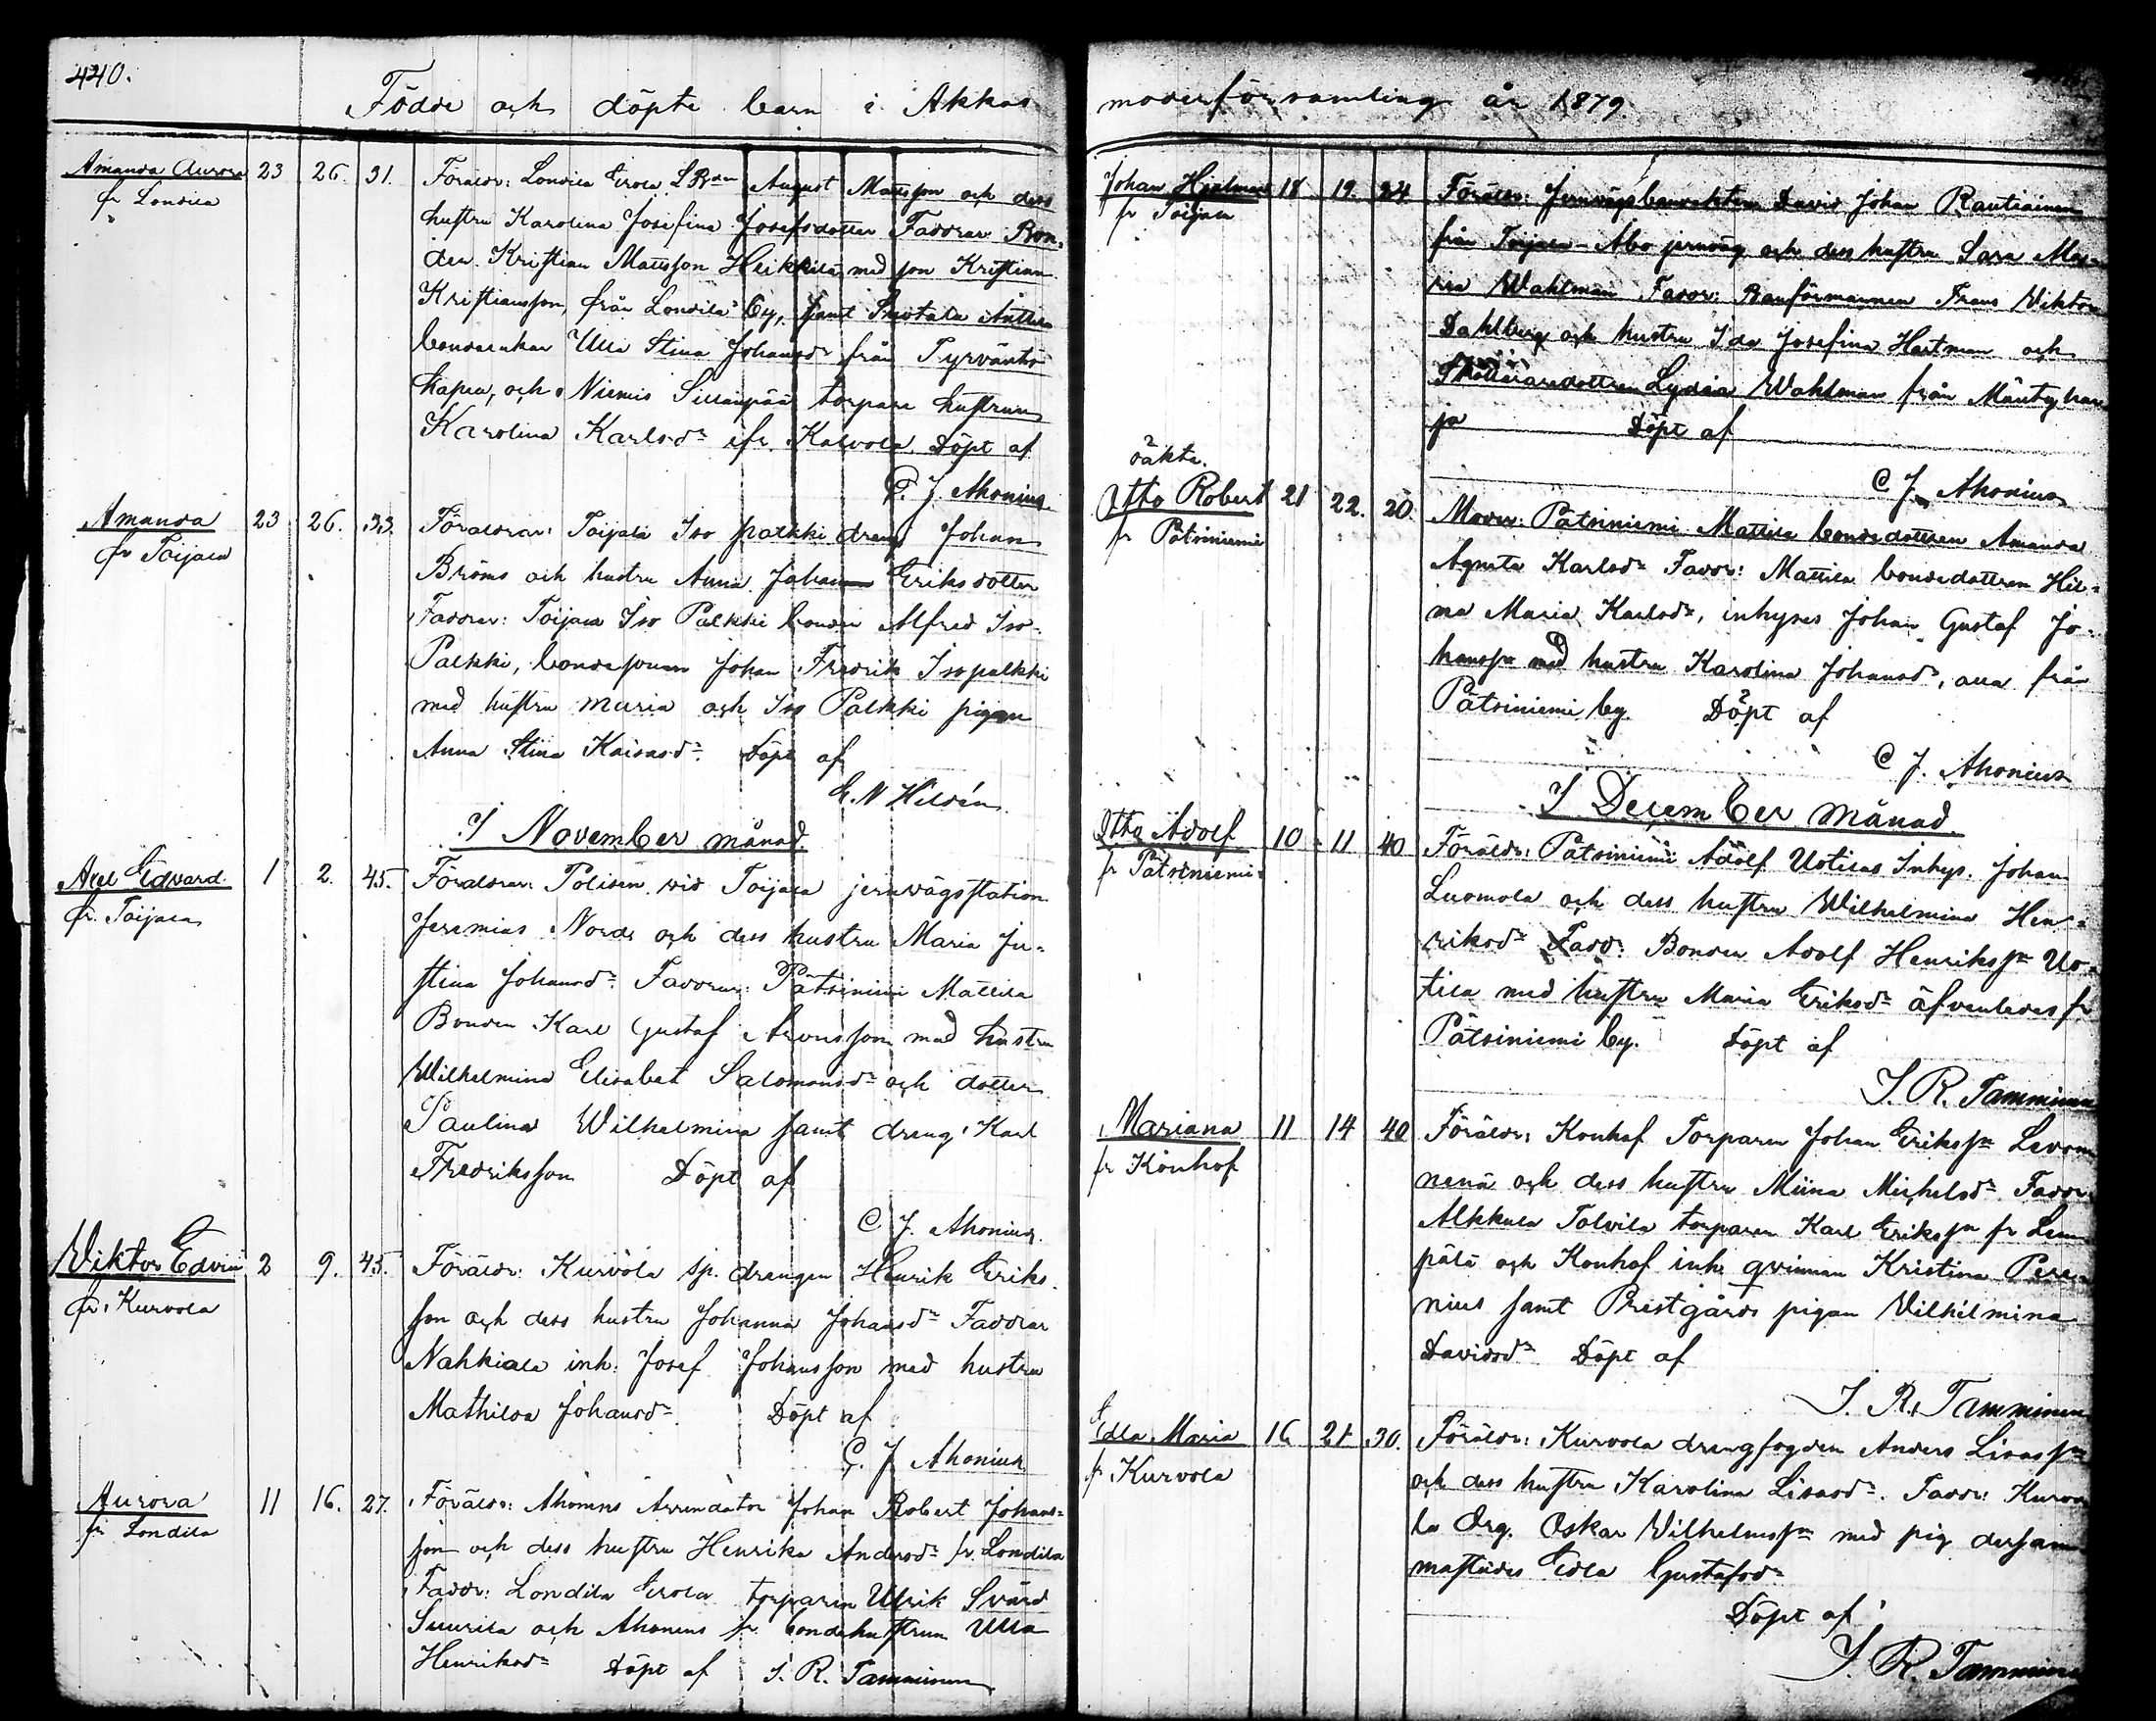 440.
Födde och döpte barn i Akkas
Amanda Aurora 23 26. 31. Föräldr: Londila Erola August Mattsson och dess
fr Londila hustru Karolina Josefina Josefsdotter Faddrar Bon-
den Kristian Mattsson Heikkilä med son Kristian
Kristiansson, från Londila by, samt Anttila
bondeenkan Ulla Stina Johansdr från Tyrväntö
kapell, och Niemis Sillanpää torpare hustrun
Karolina Karlsdr fr. Kalvola. Döpt af
C. J. Ahonius.
Amanda 23 26. 33. Föräldrar: Toijala Iso palkki dreng Johan
fr Toijala Bröms och hustru Anna Eriksdotter
Faddrar: Toijala Iso Palkki bonden Alfred Iso-
Palkki, bondesonen Johan Fredrik Isopalkki
med hustru Maria och Iso Palkki pigan
Anna Stina Kaisasdr. Döpt af
E. N Hildén
I November månad.
Axel Edvard. 1 2. 45. Föräldrar: Polisen vid Toijala jernvägsstation
fr. Toijala Jeremias Nords och dess hustru Maria Ju-
stina Johansdr. Faddrar: Pätsiniemi Mattila
Bonden Karl Gustaf Aronsson med hustru
Wilhelmina Elisabet Salomonsdr och dotter
Paulina Wilhelmina samt dreng Karl
Fredriksson Döpt af
C. J. Ahonius.
Viktor Edvin 2 9. 45. Föräldr: Kurvola sp. drengen Henrik Eriks
fr. Kurvola son och dess hustru Johanna Johansdr Faddrar
Nahkiala inh: Josef Johansson med hustru
Mathilda Johansdr. Döpt af
C. J Ahonius
Aurora 11 16. 27. Föräldr: Ahonens Arrendator Johan Robert Johans-
fr Londila son och dess hustru Henrika Andersdr fr. Londila
Faddr: Londila Erola torparen Ulrik Svärd
Suurila och Ahonens fr. bondehustrun Ulla
Henriksdr Döpt af I. R. Tamminen
moderförsamling år 1879.
Johan Hjalmar 18 19. 24 Föräldr: Jernvägsbanvakten David Johan Rautiainen
fr Toijala från Toijala-Åbo jernväg och dess hustru Sara Ma-
ria Wahlman Faddr: Banförmannen Frans Viktor
Dahlberg och hustru Ida Josefina Hartman och
Lydia Wahlman från Mäntyhar-
ju Döpt af
C J. Ahonius
oäkta.
Otto Robert 21 22. 20. Moder: Pätsiniemi Mattila bondedottren Amanda
fr Pätsiniemi Agneta Karlsdr Faddr: Mattila bondedottren Hil-
ma Maria Karlsdr, inhyses Johan Gustaf Jo-
hansson med hustru Karolina Johansdr, alla från
Pätsiniemi by. Döpt af
C J. Ahonius
I December månad.
Otto Adolf 10 11 40 Föräldr: Pätsiniemi Adolf Uotilas Inhys. Johan
fr Pätsiniemi Luomola och dess hustru Wilhelmina Hen-
riksdr Fadd: Bonden Adolf Henrikssn Uo-
tila med hustru Maria Eriksdr äfvenledes fr
Pätsiniemi by. Döpt af
I. R. Tamminen
Mariana 11 14 40 Föräldr: Konhof Torparen Johan Erikssn Levon
fr Konhof nenä och dess hustru Miina Michelsdr Faddr:
Alkkula Tolvila torparen Karl Erikssn fr Lem
pälä och Konhof inh qvinnan Kristina
nius samt Prestgårds pigan Vilhelmina
Davidsdr Döpt af
I. R. Tamminen
Edla Maria 16 21 30. Föräldr: Kurvola drengfogden Anders Liisassn
fr Kurvola och dess hustru Karolina Liisasdr. Faddr: Kurvo
la Drg. Oskar Vilhelmssn med pig dersam
mastädes Edla Gustafsdr
Döpt af
I. R. Tamminen